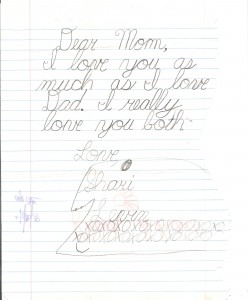 Dear Mom,
I love you as
much as I love
Dad. I really
love you both
Love
Shari
xoxoxoxoxoxoxo